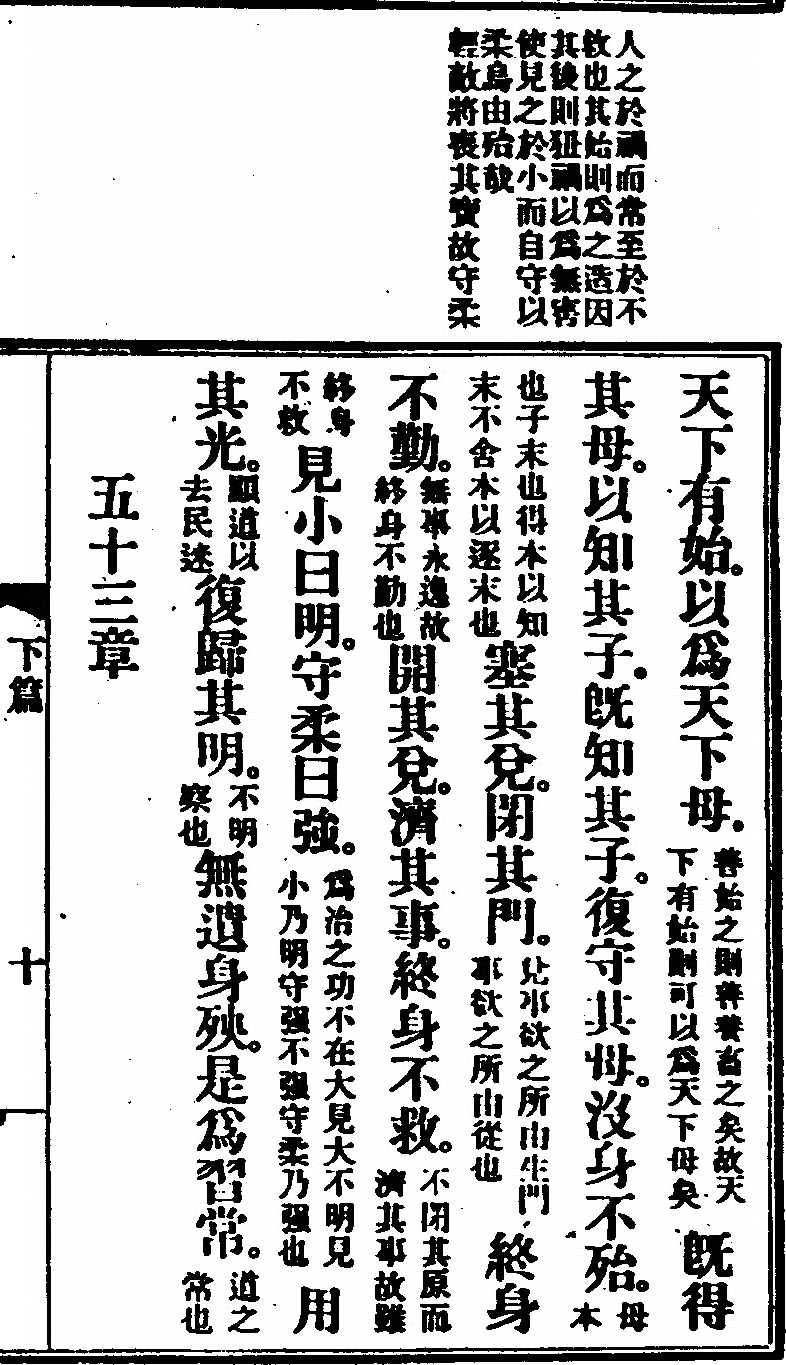 人之於禍而常至於不
救也其始則爲之造因
其後則狃禍以爲無害
使見之於小而自守以
柔烏由殆哉
輕敵將喪其寶故守柔
天下有始。以爲天下母。善始之則善養畜之矣故天下有始則可以爲天下母矣既得
其母。以知其子。既知其子。復守其母。沒身不殆。母本
也子末也得本以知末不舍本以逐末也塞其兌。閉其門。兌事欲之所由生門事欲之所由從也終身
不勤。無事永逸故終身不勤也開其兌。濟其事。終身不救。不閉其原而濟其事故雖
終身不救見小曰明。守柔曰強。爲治之功不在大見大不明見小乃明守强不强守柔乃强也用
其光。顯道以去民迷復歸其明。不明察也無遺身殃。是爲習常。道之常也
五十三章
下篇
十